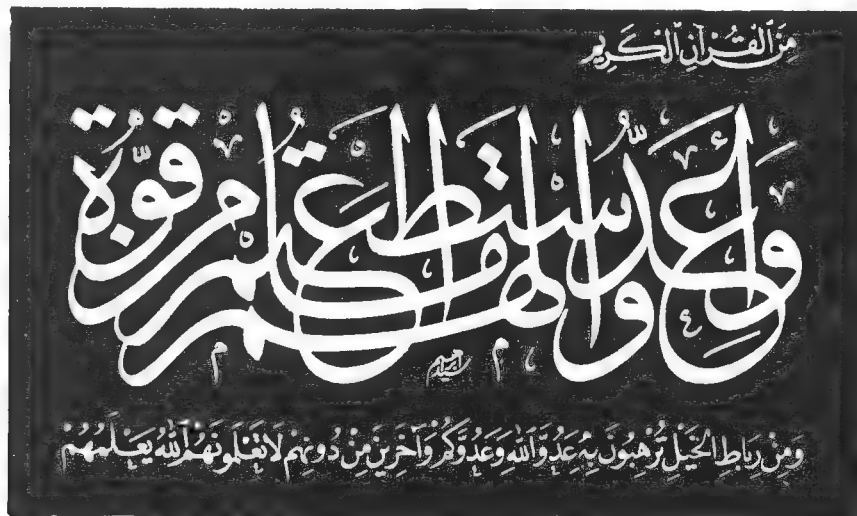 مِنَ ٱلْقُرْآنِ ٱلْكَرِيمِ
وَأَعِدُّوا لَهُمْ مَا اسْتَطَعْتُمْ مِنْ قُوَّةٍ
وَمِنْ رِبَاطِ الْخَيْلِ تُرْهِبُونَ بِهِ عَدُوَّ اللهِ وَعَدُوَّكُمْ وَآخَرِينَ مِنْ دُونِهِمْ لَا تَعْلَمُونَهُمُ اللهُ يَعْلَمُهُمْ